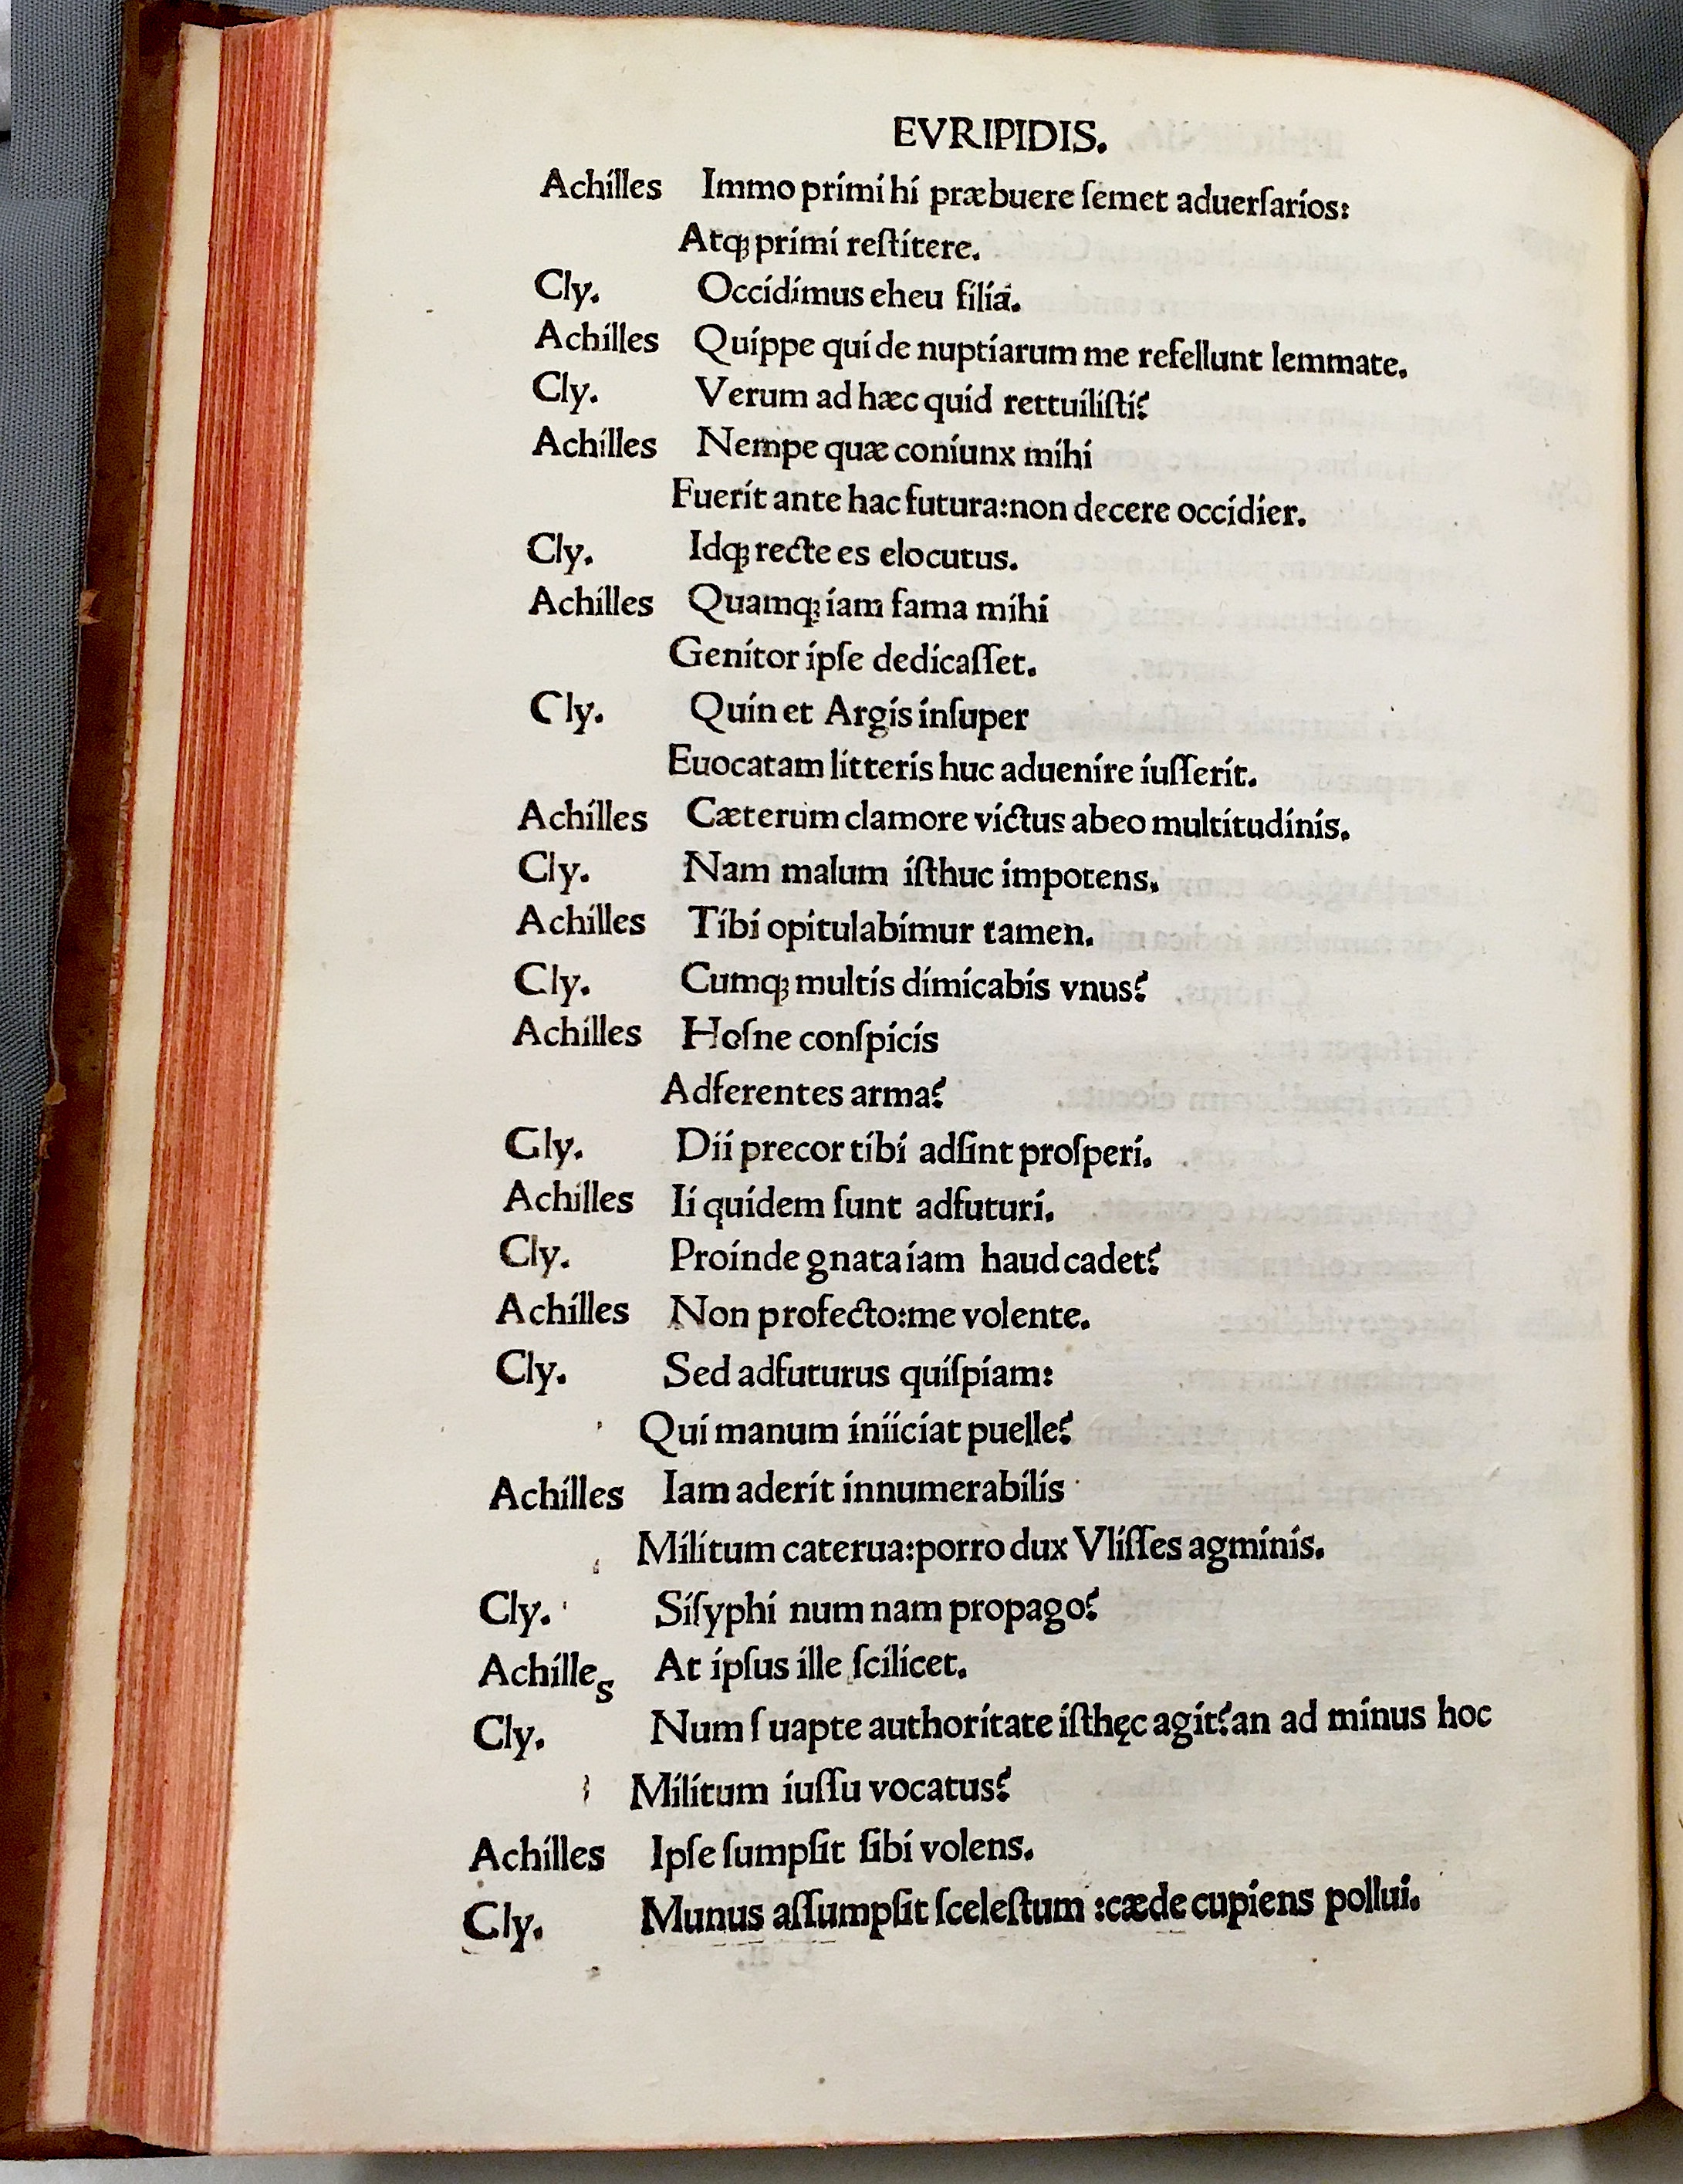 EVRIPIDIS.
Achilles Immo primi hi præbuere ſemet aduerſarios:
Atqꝫ primi reſtitere.
Cly. Occidimus eheu filia.
Achilles Quippe qui de nuptiarum me refellunt lemmate.
Cly. Verum ad hæc quid rettuiliſti?
Achilles Nempe quæ coniunx mihi
Fuerit ante hac futura:non decere occidier.
Cly. Idqꝫ recte es elocutus.
Achilles Quamqꝫ iam fama mihi
Genitor ipſe dedicaſſet.
Cly. Quin et Argis inſuper
Euocatam litteris huc aduenire iuſſerit.
Achilles Cæterum clamore victus abeo multitudinis.
Cly. Nam malum iſthuc impotens.
Achilles Tibi opitulabimur tamen.
Cly. Cumqꝫ multis dimicabis vnus?
Achilles Hoſne conſpicis
Adferentes arma?
Gly. Dii precor tibi adſint proſperi.
Achilles Ii quidem ſunt adfuturi.
Cly. Proinde gnata iam haud cadet?
Achilles Non profecto:me volente.
Cly. Sed adfuturus quiſpiam:
Qui manum iniiciat puelle?
Achilles Iam aderit innumerabilis
Militum caterua:porro dux Vliſſes agminis.
Cly. Siſyphi num nam propago?
Achilles At ipſus ille ſcilicet.
Cly. Num ſuapte authoritate iſthęc agit?an ad minus hoc
Militum iuſſu vocatus?
Achilles Ipſe ſumpſit ſibi volens.
Cly. Munus aſſumpſit ſceleſtum :cæde cupiens pollui.